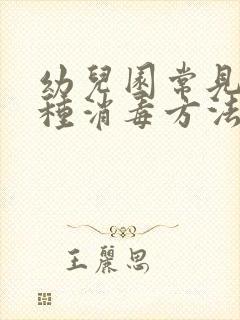 幼兒園常見
種消毒方法
王麗思